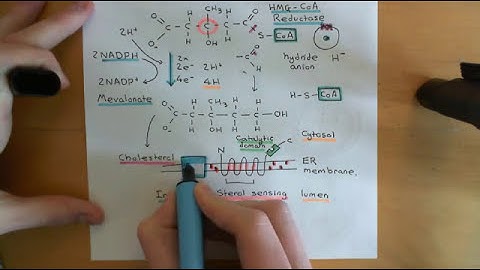 HMG-CoA
Reductase
2H⁺
2NADPH
2NADP⁺
2H
2e⁻
4e⁻
4H
CH₃
OH
S-CoA
hydride
anion
H⁻
H-S-CoA
Mevalonate
CH₃
OH
OH
Catalytic
domain
C
Cytosol
Cholesterol
N
ER
membrane.
Sterol sensing
lumen